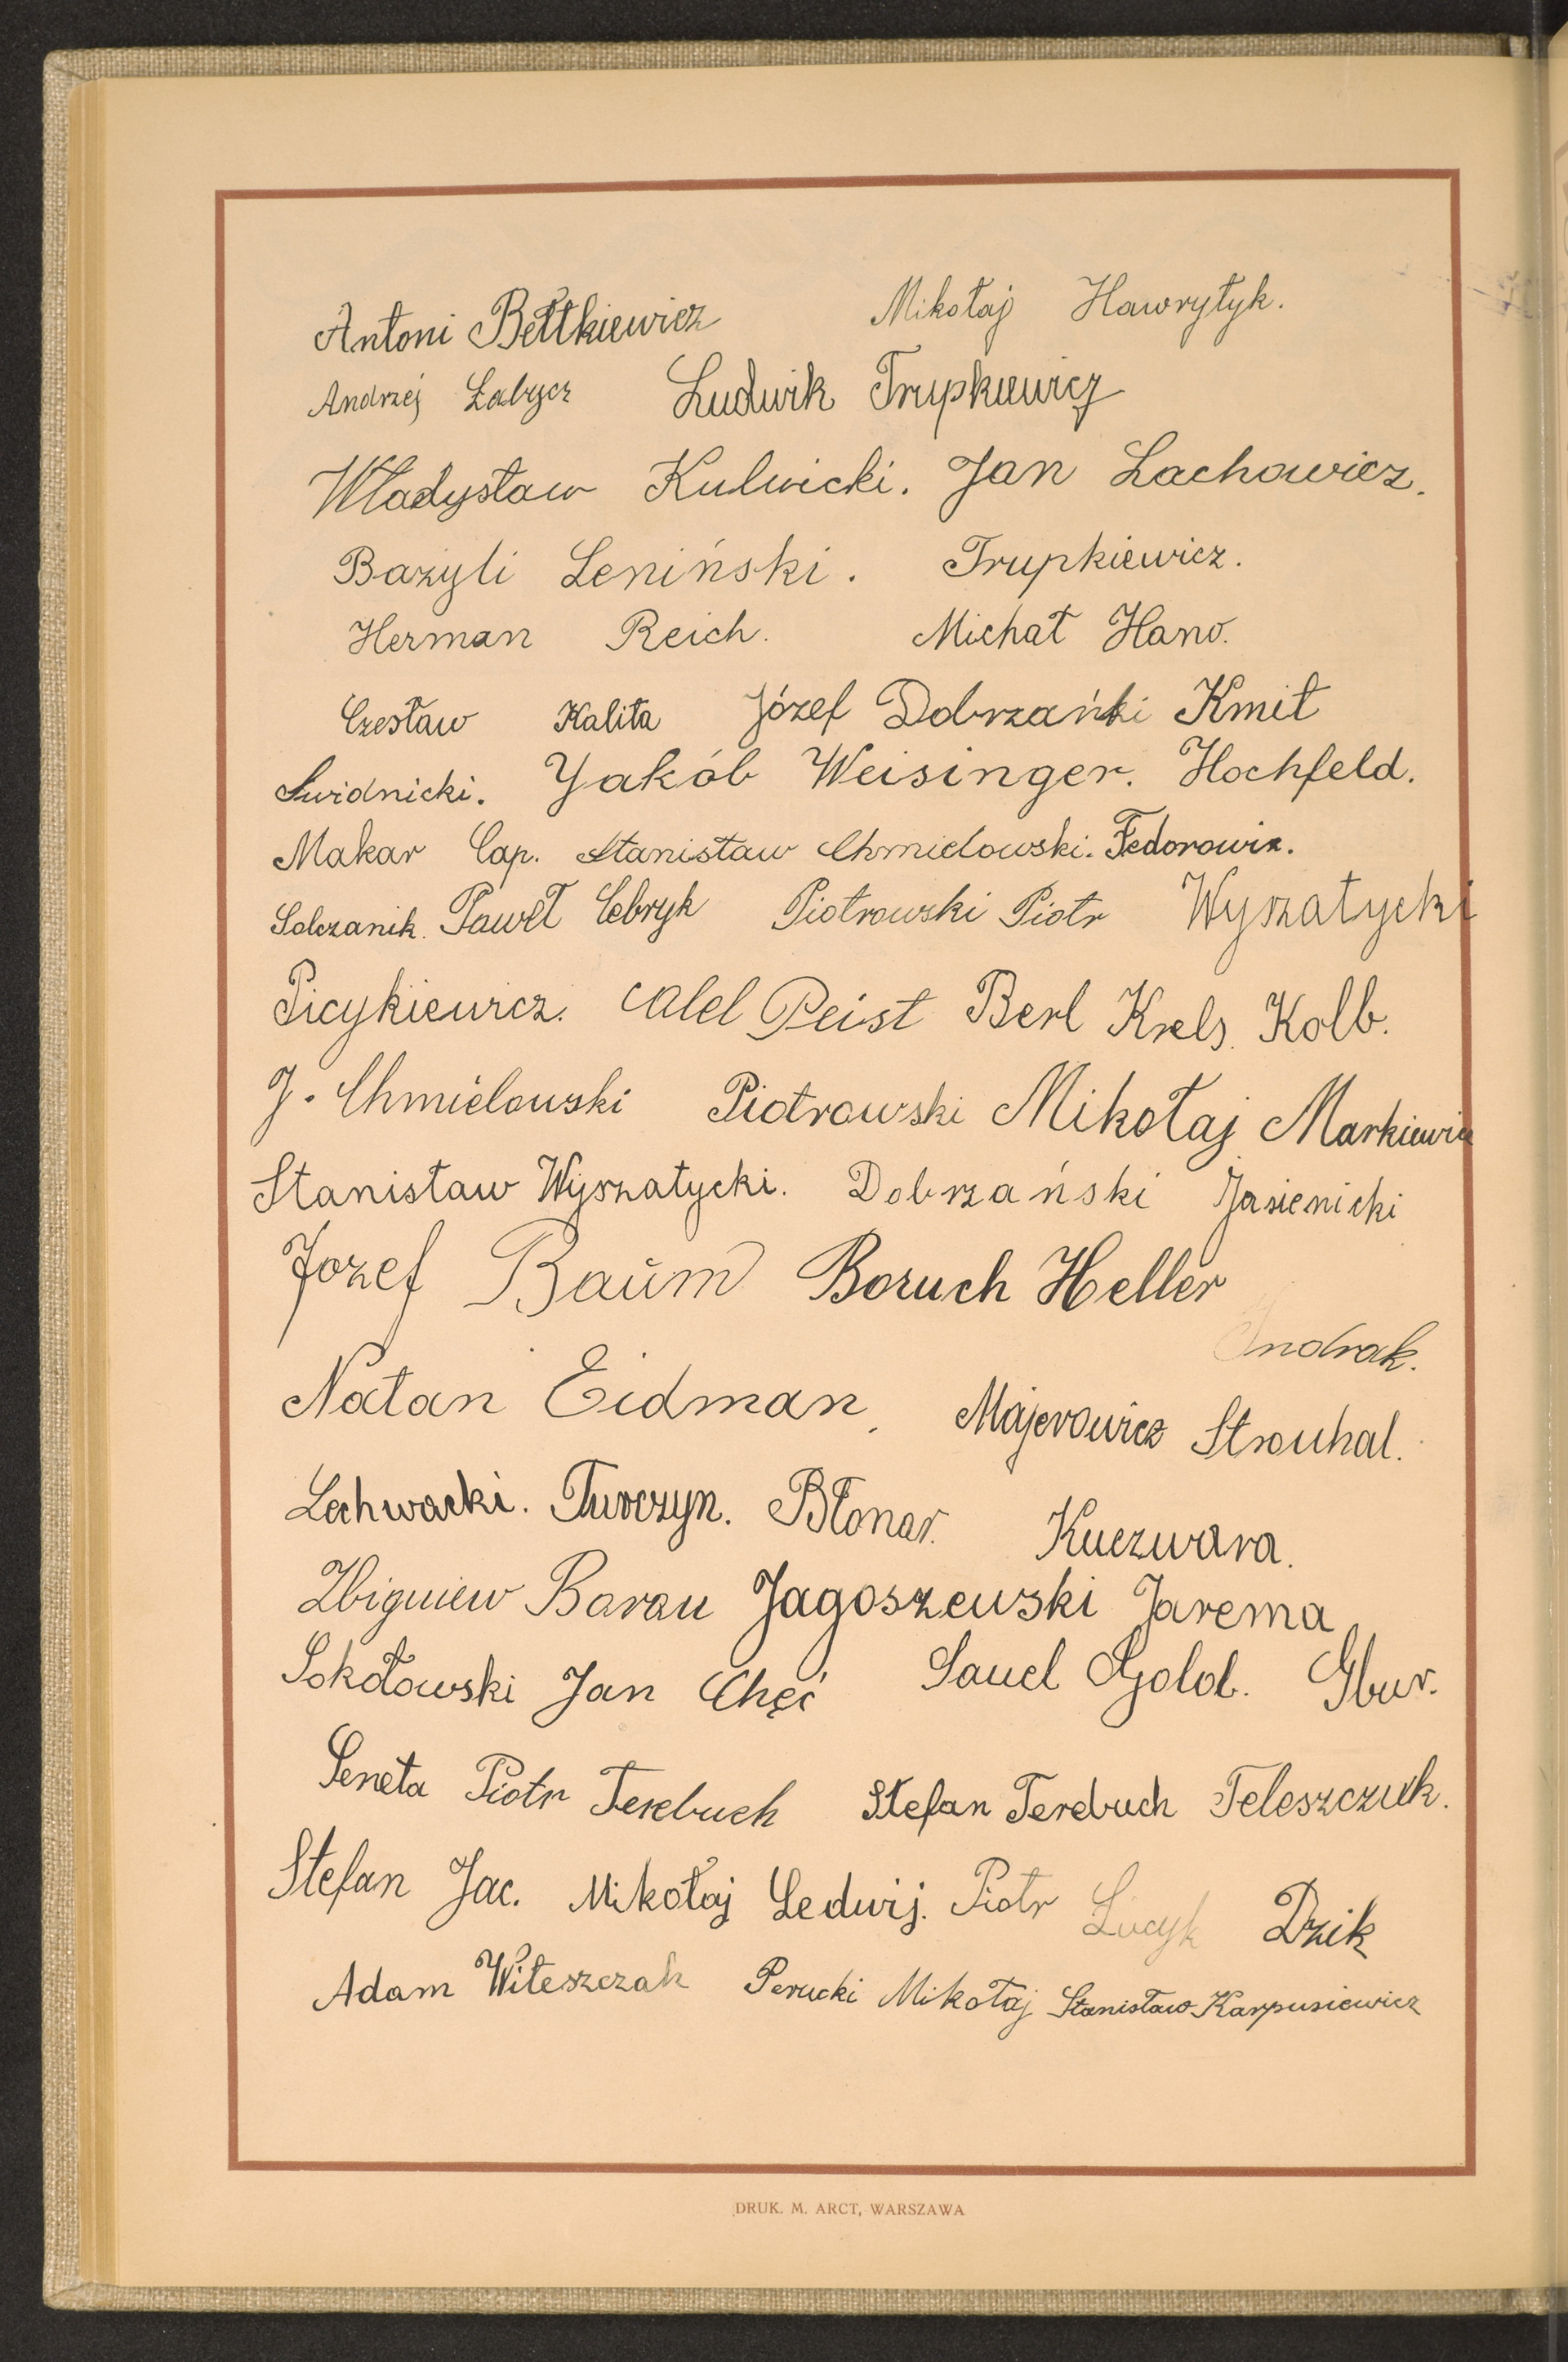 Antoni Bełtkiewicz Mikołaj Hawryłyk.
Andrzej Łabycz Ludwik Trupkiewicz
Władysław Kulwicki. Jan Lachowicz.
Bazyli Leniński. Trupkiewicz.
Herman Reich. Michał Hano.
Czesław Kalita Józef Dobrzański Kmit
Swidnicki. Yakób Weisinger. Hochfeld.
Makar Cap. Stanisław Chmielowski. Fedorowicz.
Solczanik. Paweł Cebryk Piotrowski Piotr Wyszatycki
Picykiewicz. Peist Berl Krels. Kolb.
J. Chmielowski Piotrowski Mikołaj Markiewicz
Stanisław Wyszatycki. Dobrzański Jasienicki
Jozef Baum Boruch Heller
Andrak.
Natan Eidman. Majerowicz Strouhal.
Lechwacki. Turczyn. Błonar. Kuczwara.
Zbigniew Barau Jagoszewski Jarema
Sokołowski Jan Chęć Sauel Golob. Gbur.
Seneta Piotr Terebuch Stefan Terebuch Teleszczuk.
Stefan Jac. Mikołaj Ledwij. Piotr Łucyk Dzik
Adam Witeszczak Perucki Mikołaj Stanisław Karpusiewicz
DRUK. M. ARCT, WARSZAWA